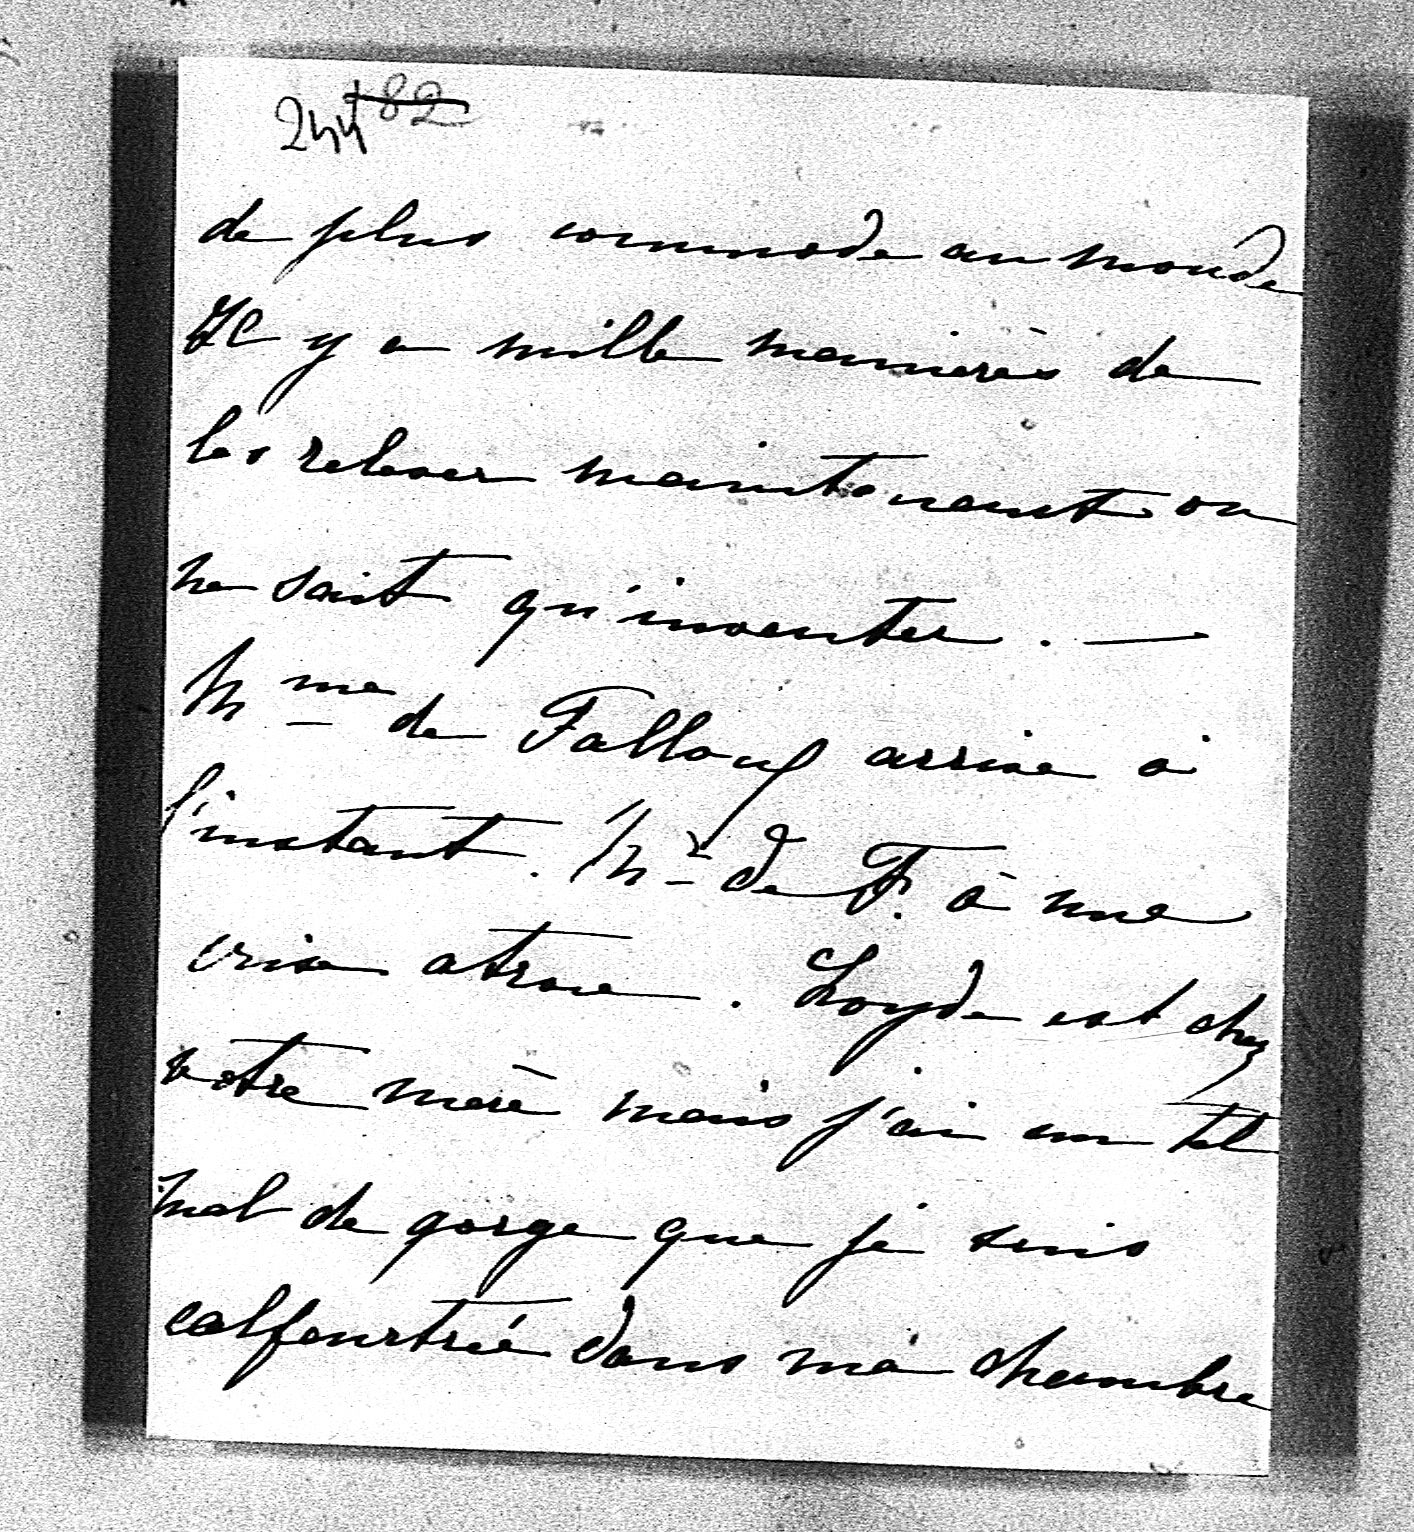 244 82
de plus commode au monde
Il y a mille manières de
les relever maintenant on
ne sait qu'inventer. —
Mme de Falloux arrive à
l'instant. Mr de F. à une
crise atroce. Loyde est chez
votre mère mais j'ai un tel
mal de gorge que je suis
calfeutrée dans ma chambre